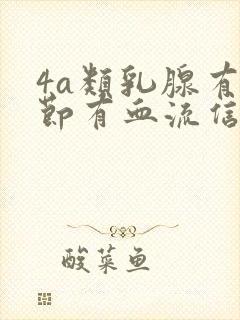 4a类乳腺有
节有血流信
酸菜鱼